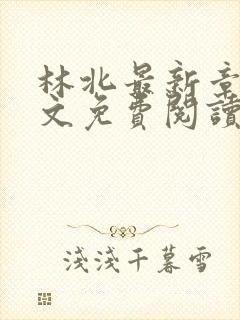 林北最新章
文免費閱讀
淺淺千暮雪